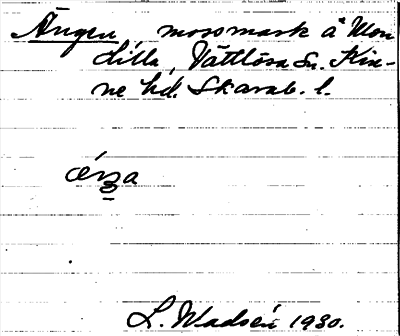 Ängen, mossmark å Mon
dilla, Vättlösa Sn. Kin-
ne hd. Skarab. l.
L. Wadsén 1930.